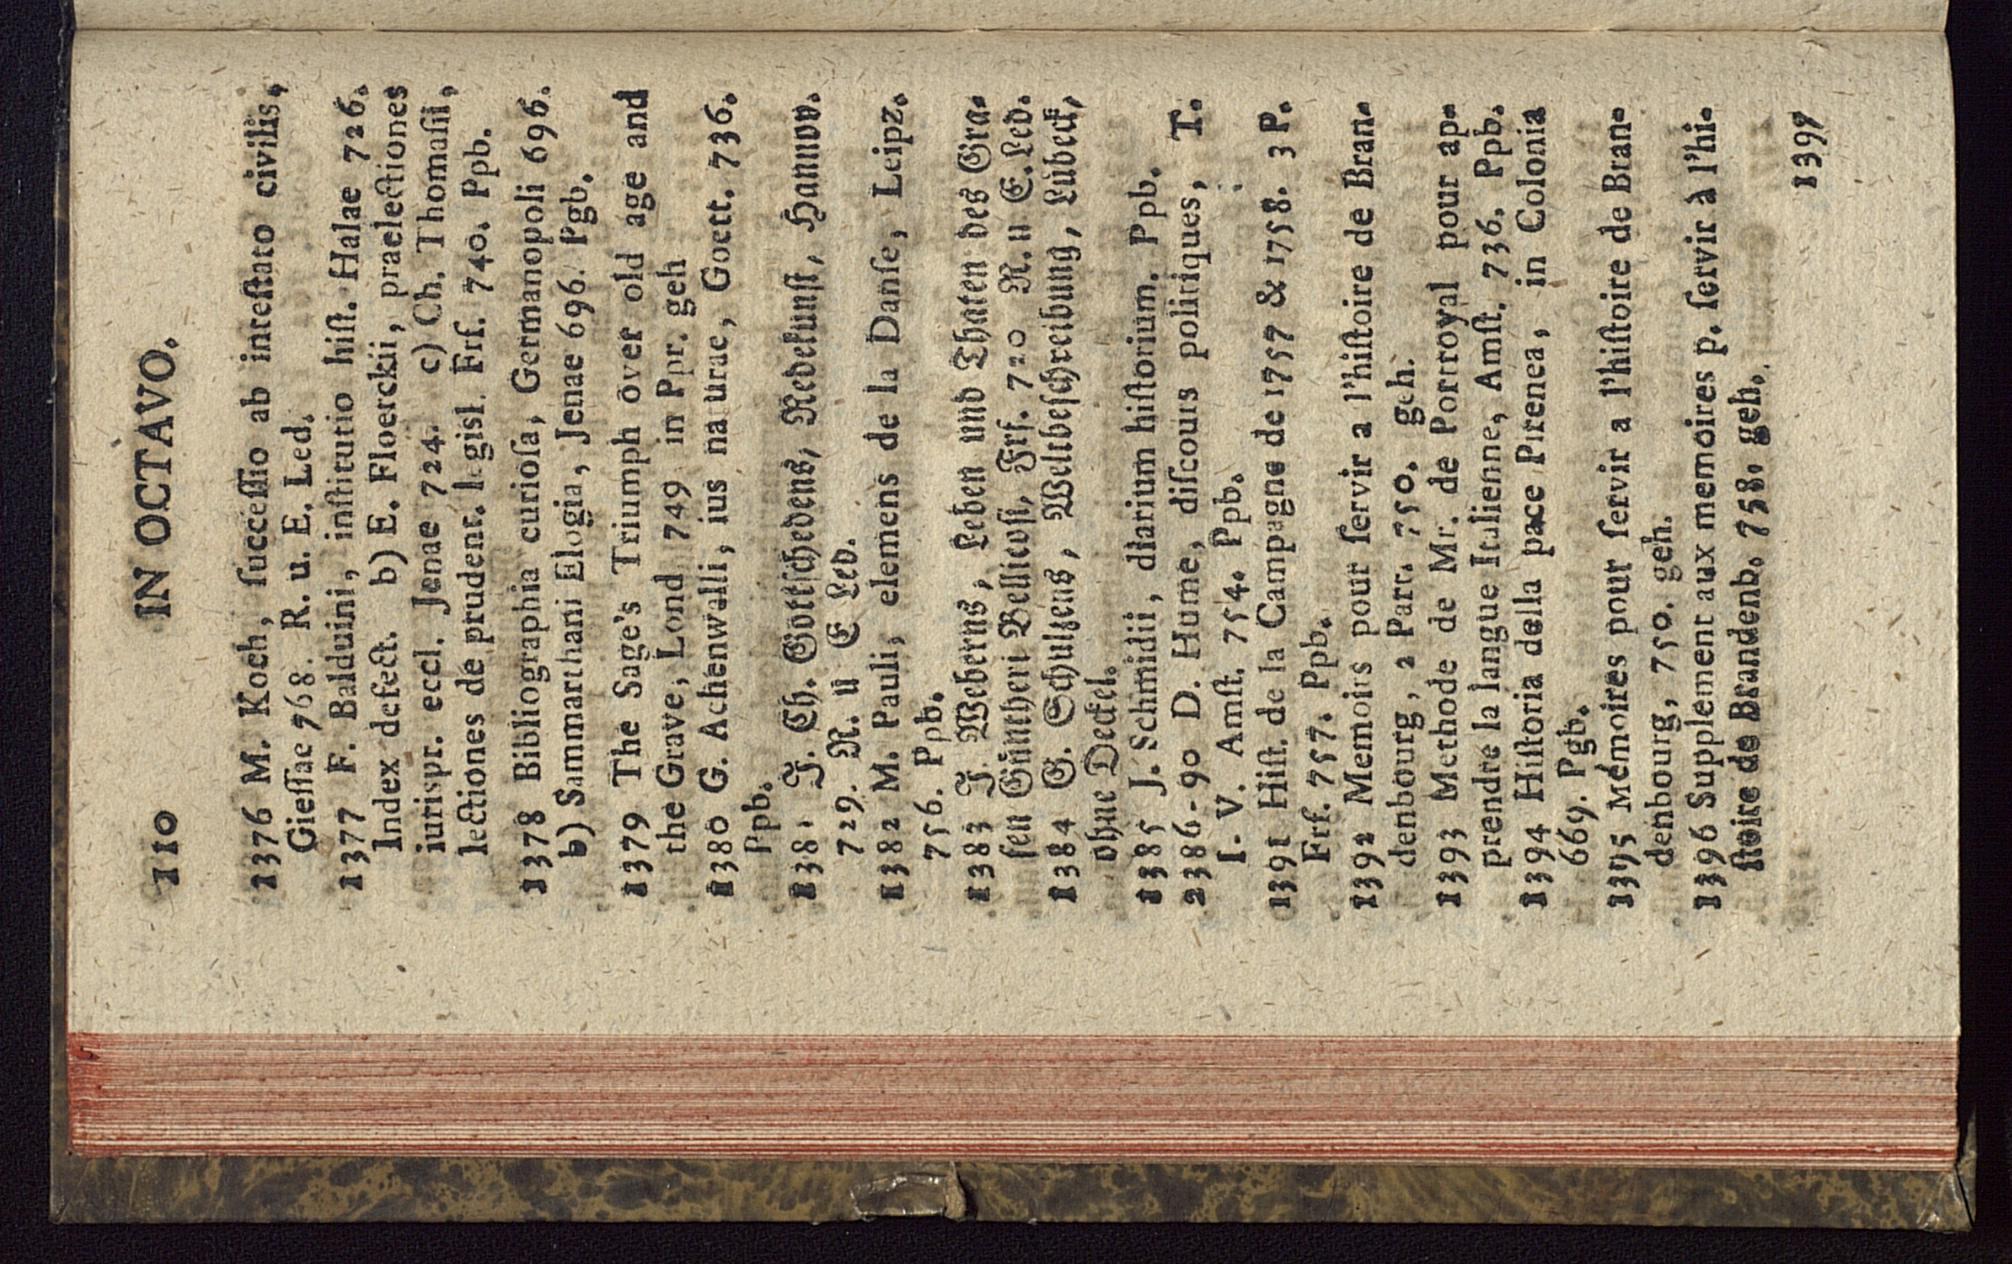 110 IN OCTAVO.
1376 M. Koch, ſucceſſio ab inteſtato civilis,
Gieſſae 768. R. u. E. Led.
1377 F. Balduini, inſtitutio hiſt. Halae 726.
Index defect. b) E. Floerckii, praelectiones
iurispr. eccl. Jenae 724. c) Ch. Thomaſii,
lectiones de prudent. legisl. Frf. 740. Ppb.
1378 Bibliographia curioſa, Germanopoli 696.
b) Sammarthani Elogia, Jenae 696. Pgb.
1379 The Sage's Triumph over old age and
the Grave, Lond 749 in Ppr. geh
1380 G. Achenwalli, ius naturae, Goett. 736.
Ppb.
1381 J. Ch. Gottſchedens, Redekunſt, Hannov.
729. R. u E Led.
1382 M. Pauli, elemens de la Danſe, Leipz.
756. Ppb.
1383 J. Weberns, Leben und Thaten des Gra-
fen Güntheri Bellicoſi, Frf. 720 R. u E. Led.
1384 G. Schulzens, Weltbeſchreibung, Lübeck,
ohne Deckel.
1385 J. Schmidii, diarium hiſtorium. Ppb.
2386-90 D. Hume, diſcours politiques, T.
I-V. Amſt. 754. Ppb.
1391 Hiſt. de la Campagne de 1757 & 1758. 3 P.
Frf. 757. Ppb.
1392 Memoirs pour ſervir a l'hiſtoire de Bran-
denbourg, 2 Part. 750. geh.
1393 Methode de Mr. de Portroyal pour ap-
prendre la langue Italienne, Amſt. 736. Ppb.
1394 Hiſtoria della pace Pirenea, in Colonia
669. Pgb.
1395 Mémoires pour ſervir a l'hiſtoire de Bran-
denbourg, 750. geh.
1396 Supplement aux memoires p. ſervir à l'hi-
ſtoire de Brandenb. 758. geh.
1397